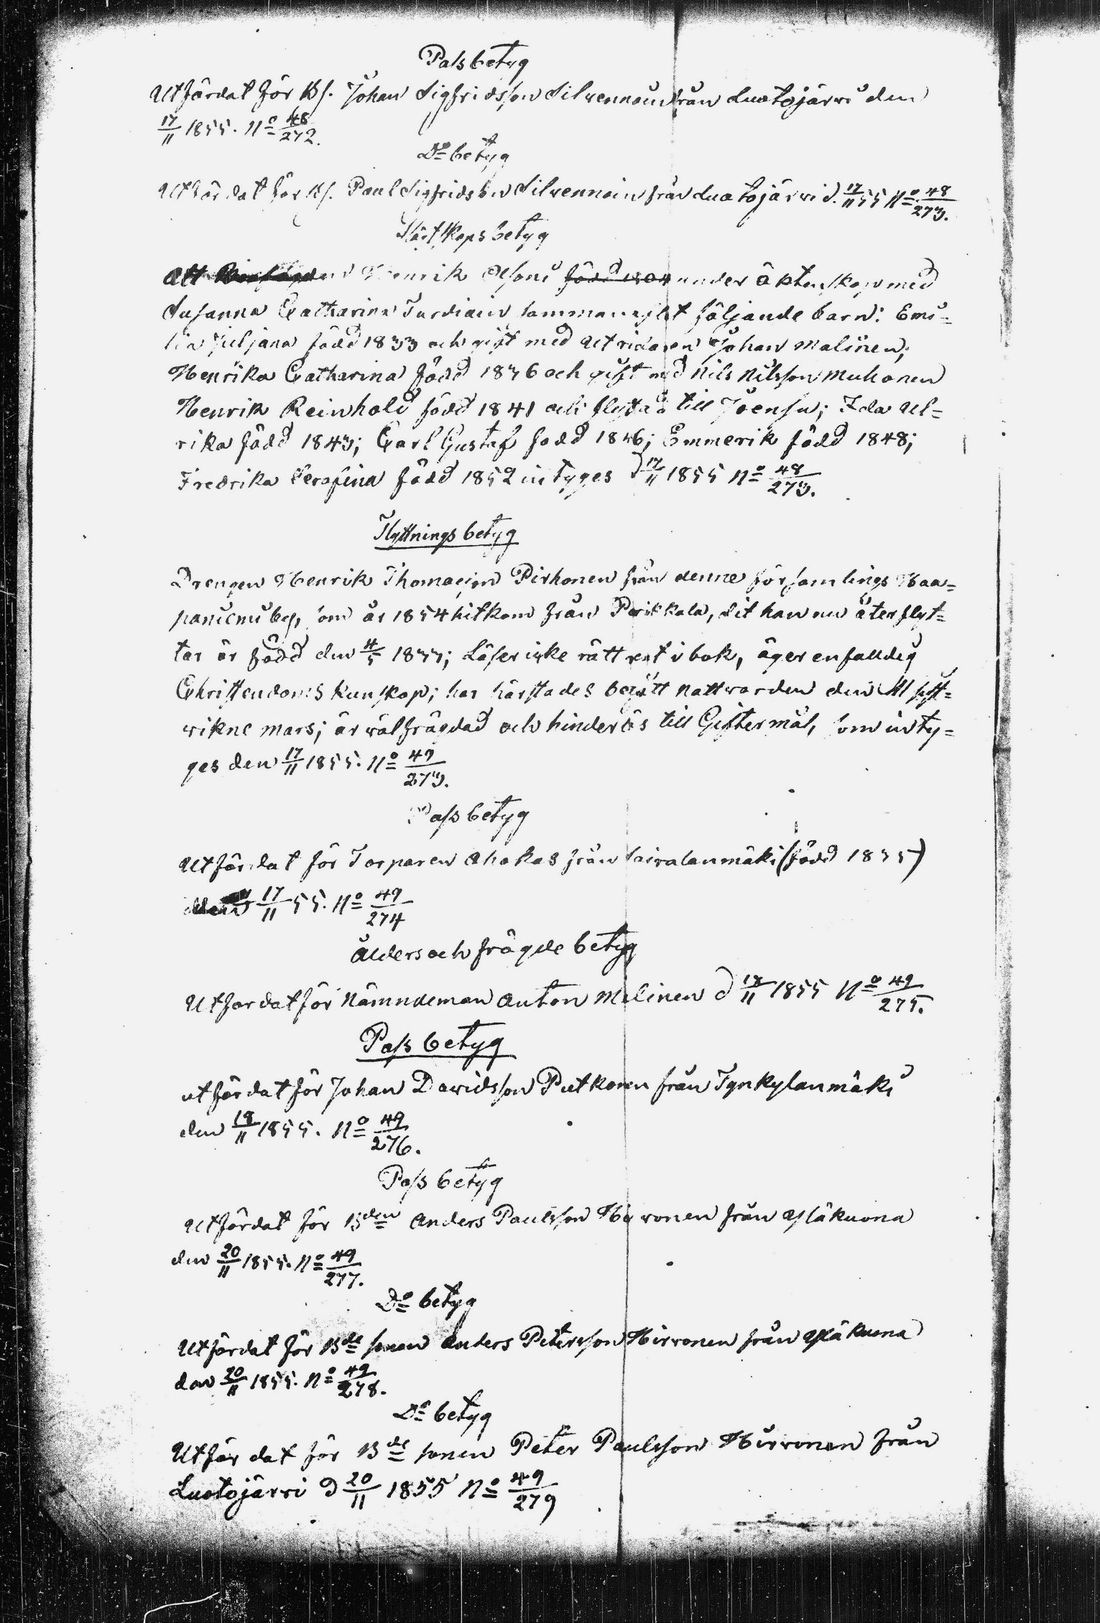 Pass betyg
Utfärdat för Bs. Johan Sigfridsson Silvennoin från Luotojärvi den
17/11 1855. No 48/272.
Do betyg
Utfärdat för Bs. Paul Sigfridsson Silvennoin från Luotojärvi d. 17/11 55 No 48/273.
Släktskaps betyg
Att Henrik Olsoni född 1804 under äktenskap med
Susanna Catharina Turdiain sammanaflat följande barn: Emi=
lia Juljana född 1833 och gift med Utridaren Johan Malinen;
Henrika Catharina född 1836 och gift med Nils Nilsson Muhonen
Henrik Reinhold född 1841 och flyttad till Joensu; Ida Ul=
rika född 1843; Carl Gustaf född 1846; Emmerik född 1848;
Fredrika Serafina född 1852 intyges d 17/11 1855 No 48/273.
Flyttnings betyg
Drengen Henrik Thomasson Pirhonen från denne församlings Haa=
paniemi by, som år 1854 hitkom från Parikkala, dit han nu återflyt=
tar är född den 4/5 1833; Läser icke rätt rent i bok, äger enfalldig
Christendoms kunskap; har härstades begått nattwarden den sist=
wikne mars; är wälfrägdad och hinderlös till Giftermål, som inty=
ges den 17/11 1855. No 49/273.
Pass betyg
Utfärdat för Torparen Ahokas från Saivalanmäki (född 1835)
den 17/11 55. No 49/274
Ålders och frägde betyg
Utfärdat för Nämndeman Anton Malinen d 18/11 1855 No 49/275.
Pass betyg
utfärdat för Johan Davidsson Putkonen från Tynkylanmäki
den 18/11 1855. No 49/276.
Pass betyg
Utfärdat för Bden Anders Paulsson Hirvonen från Yläkuona
den 20/11 1855. No 49/277.
Do betyg
Utfärdat för Bde sonen Anders Petersson Hirvonen från Yläkuona
den 20/11 1855. No 49/278.
Do betyg
Utfärdat för Bde sonen Peter Paulsson Hirvonen från
Luotojärvi d 20/11 1855 No 49/279